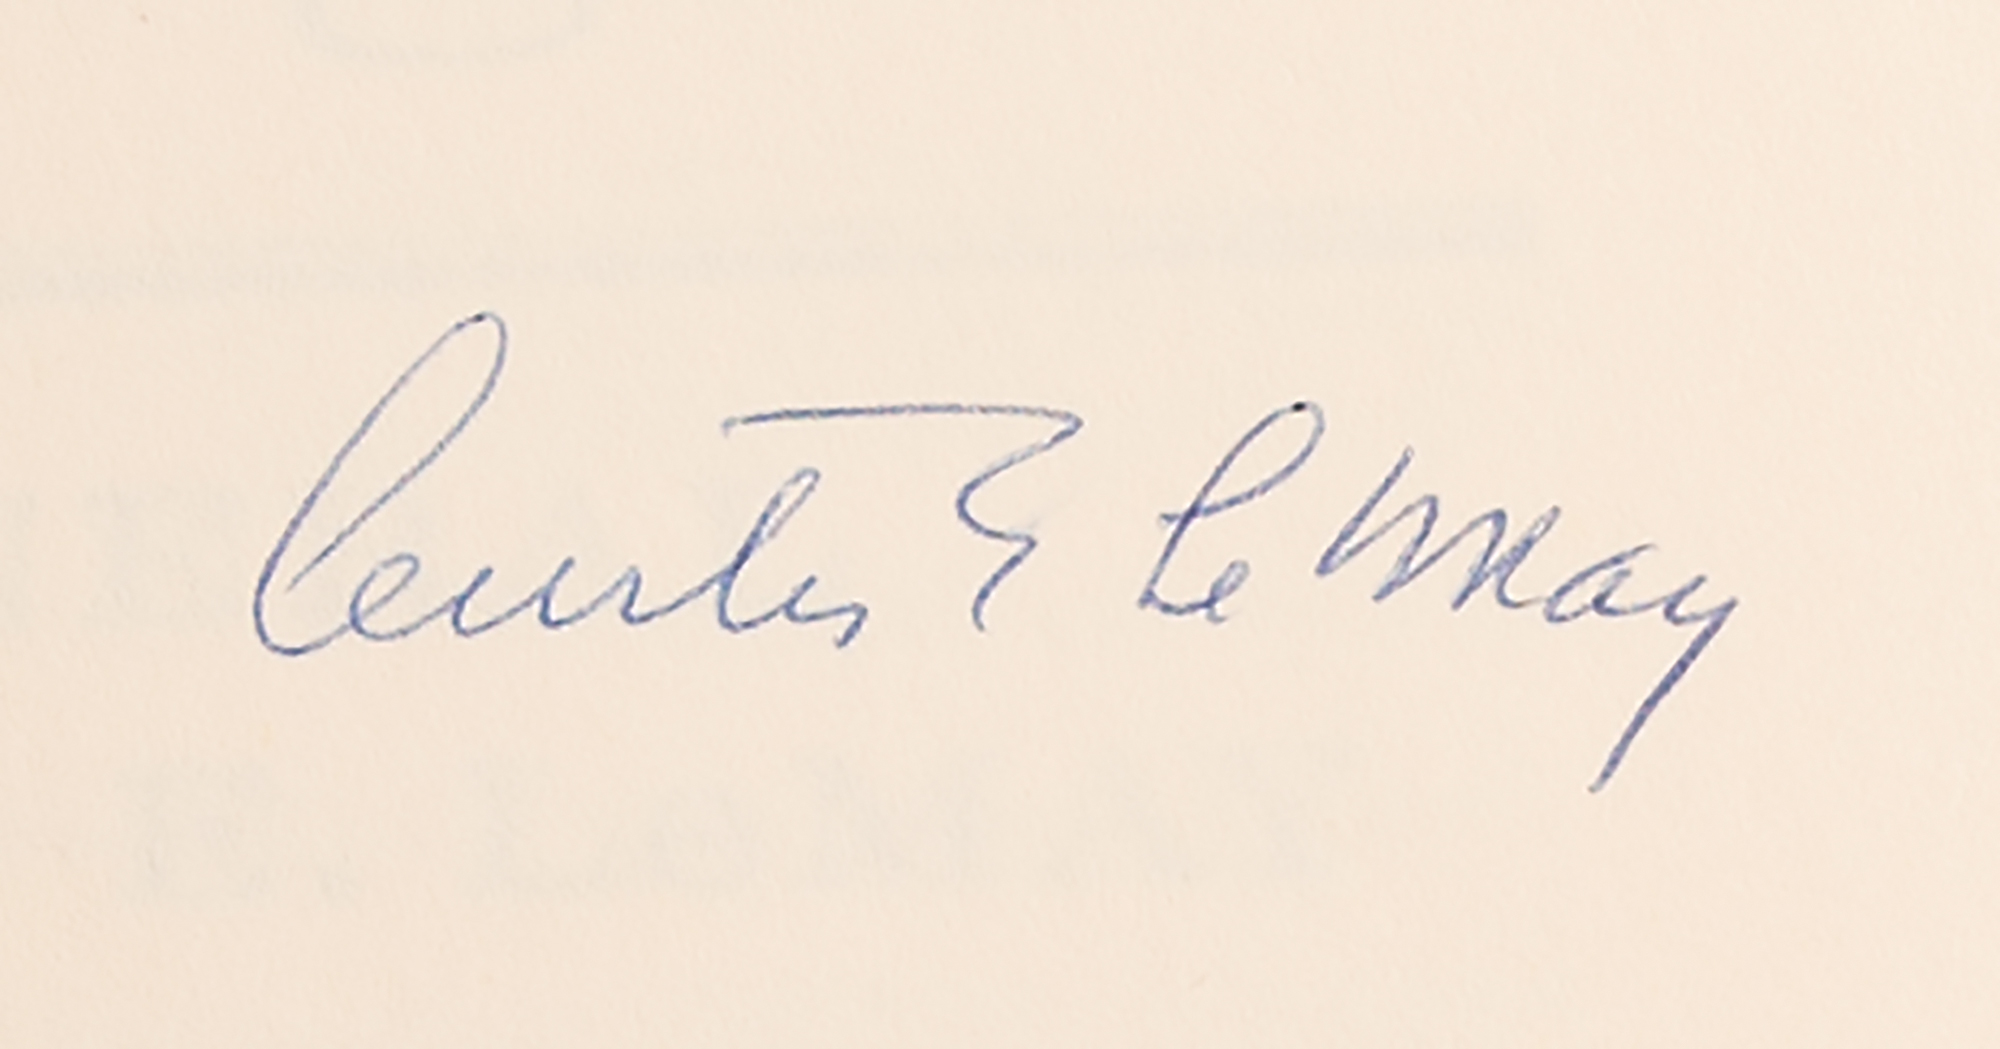 Curtis E LeMay